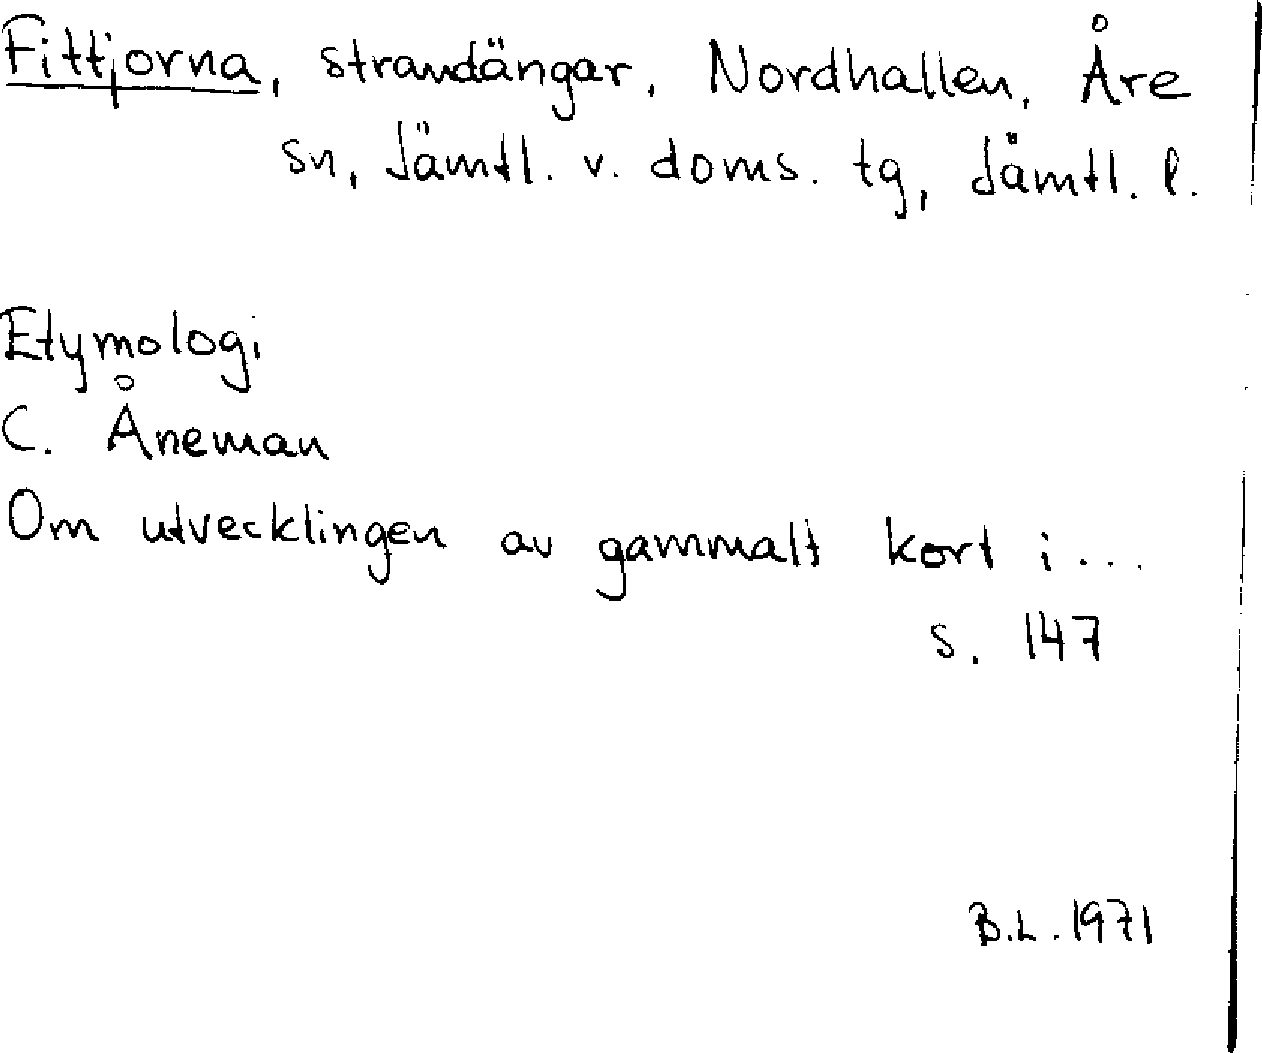 Fittjorna, strandängar, Nordhallen, Åre
sn, Jämtl. v. doms. tg, Jämtl. l.
Etymologi
C. Åneman
Om utvecklingen av gammalt kort i...
s. 147
B.L. 1971